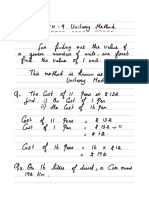 CH - 9 Unitary Method
For finding out the value of
a given number of units, we first
find the value of 1 unit.
This method is known as
Unitary Method
Q. The Cost of 11 Pens = ₹ 132
find i) The Cost of 1 Pen
ii) The Cost of 16 Pens
Cost of 11 Pens = ₹ 132
Cost of 1 Pen =
= ₹ 12
Cost of 16 Pens = 16 × ₹12
= ₹ 192
Q2. On 16 litres of diesel, a Car runs
192 Km.